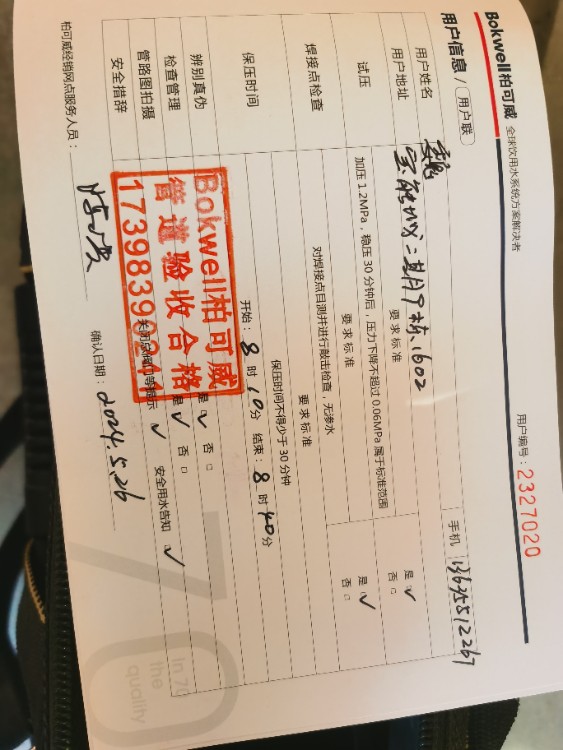 Bokwell柏可威 全球饮用水系统方案解决者
用户编号：2327020
用户信息 / 用户联
用户姓名 手机 13635812267
用户地址 二期 1602
试压 要求标准
加压 1.2MPa，稳压 30 分钟后，压力下降不超过 0.06MPa 属于标准范围 是 ✓ 否 □
焊接点检查 要求标准
对焊接点目测并进行敲击检查，无渗水 是 ✓ 否 □
保压时间 要求标准
保压时间不得少于 30 分钟
开始：8 时 10 分 结束：8 时 40 分
辨别真伪 是 ✓ 否 □
检查管理 是 ✓ 否 □
管路图拍摄
安全措辞 关闭总阀门等提示 ✓ 安全用水告知 ✓
Bokwell柏可威
管道验收合格
柏可威经销网点服务人员：
确认日期：2024.5.26
70
In 70
the
quality